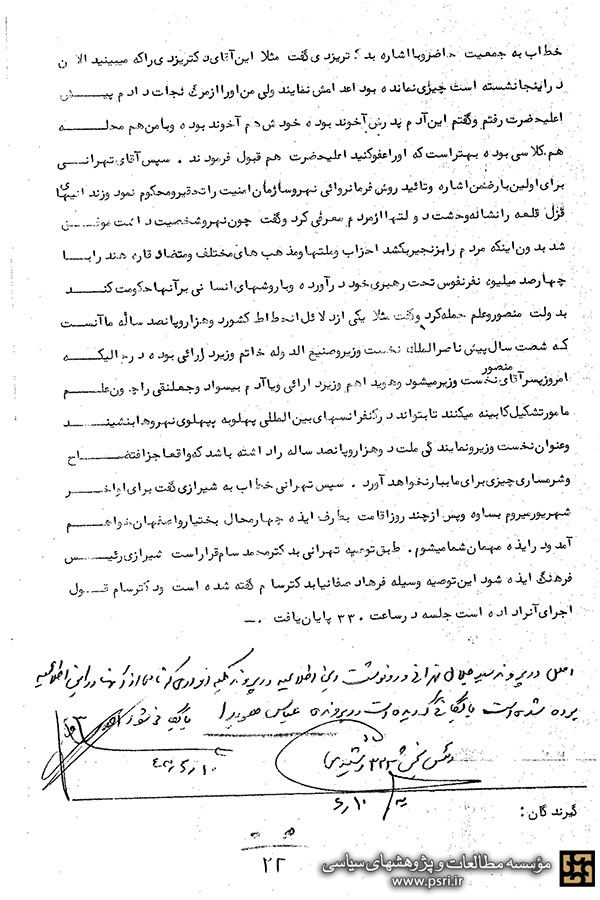 خطاب به جمعیت حاضر و با اشاره به دکتر یزدی گفت مثلا این آقای دکتر یزدی را که میبینید الان
در اینجا نشسته است چیزی نمانده بود اعدامش نمایند ولی من او را از مرگ نجات دادم پیش
اعلیحضرت رفتم و گفتم این آدم پدرش آخوند بوده خودش هم آخوند بوده و با من هم محله
هم کلاسی بوده بهتر است که او را عفو کنید اعلیحضرت هم قبول فرمودند . سپس آقای تهرانی
برای اولین بار ضمن اشاره و تائید روش فرمانروائی نهرو سازمان امنیت را تحقیر و محکوم نمود و زندانیهای
قزل قلعه را نشانه وحشت دولتها از مردم معرفی کرد و گفت چون نهرو شخصیت داشت موفق
شد بدون اینکه مردم را بزنجیر بکشد احزاب و ملتها و مذهب های مختلف و متضاد قاره هند را با
چهارصد میلیون نفر نفوس تحت رهبری خود درآورده و با روشهای انسانی برآنها حکومت کند
بدولت منصور و علم حمله کرد و گفت مثلا یکی از دلائل انحطاط کشور دو هزار و پانصد ساله ما آنست
که شصت سال پیش ناصرالملک نخست وزیر و صنیع الدوله خاتم وزیر دارائی بوده در حالیکه
امروز پسر آقای منصور نخست وزیر میشود و هویدا هم وزیر دارائی و یا آدم بیسواد و جعلنقی را چون علم
مامور تشکیل کابینه میکنند تا بتواند در کنفرانسهای بین المللی پهلو به پهلوی نهروها بنشیند
و عنوان نخست وزیر و نمایندگی ملت دو هزار و پانصد ساله را داشته باشد که واقعا جز افتضاح
و شرمساری چیزی برای ما ببار نخواهد آورد . سپس تهرانی خطاب به شیرازی گفت برای اواخر
شهریور میروم بساوه و پس از چند روز اقامت بطرف ایذه چهارمحال بختیار و اصفهان خواهم
آمد و در ایذه مهمان شما میشوم . طبق توصیه تهرانی بدکتر محمد سام قرار است شیرازی رئیس
فرهنگ ایذه شود این توصیه وسیله فرهاد صفانیا بدکتر سام گفته شده است و دکتر سام قول
اجرای آنرا داده است جلسه در ساعت ۳۳۰ پایان یافت . ـ
اصل در پرونده سید جلال تهرانی و رونوشت این اطلاعیه در پرونده کلیه افرادی که نامی از آنها در این اطلاعیه
برده شده است بایگانی گردیده است در پرونده عباس هویدا بایگانی شود
رئیس بخش ۳۳۲
۱۰ر۵ر۴۳
۱۰ر۵
گیرندگان :
۲۲
مؤسسه مطالعات و پژوهشهای سیاسی
www.psri.ir